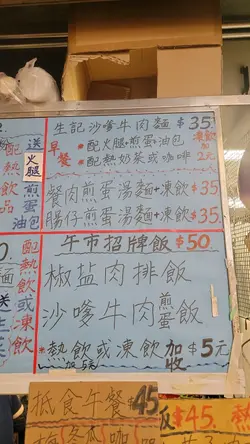 生記沙嗲牛肉麵$35
早餐
*配火腿+煎蛋+油包
*配熱奶茶或咖啡
凍飲加2元
餐肉煎蛋湯麵+凍飲$35
腸仔煎蛋湯麵+凍飲$35
送火腿煎蛋油包
配熱飲品
午市招牌飯$50
椒盐肉排飯
沙嗲牛肉煎蛋飯
*熱飲或凍飲加收$5元
配熱飲或凍飲
抵食午餐$45
$45